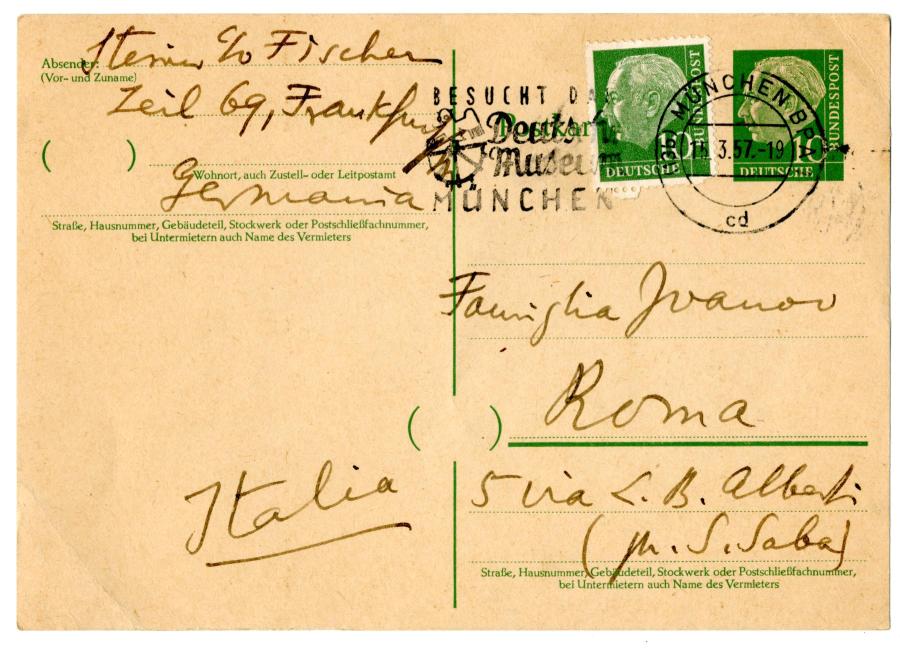 Absender: Sterin c/o Fischer
(Vor- und Zuname)
Zeil 69, Frankfurt
Wohnort, auch Zustell- oder Leitpostamt
Germania
Straße, Hausnummer, Gebäudeteil, Stockwerk oder Postschließfachnummer,
bei Untermietern auch Name des Vermieters
BESUCHT DAS
Postkarte
Deutsche
Museum
MÜNCHEN
DEUTSCHE BUNDESPOST
DEUTSCHE BUNDESPOST
10
MÜNCHEN BPA
15.3.57.-19
cd
Famiglia Ivanov
Roma
Italia
5 via L. B. Alberti
(pr. S. Saba)
Straße, Hausnummer, Gebäudeteil, Stockwerk oder Postschließfachnummer,
bei Untermietern auch Name des Vermieters